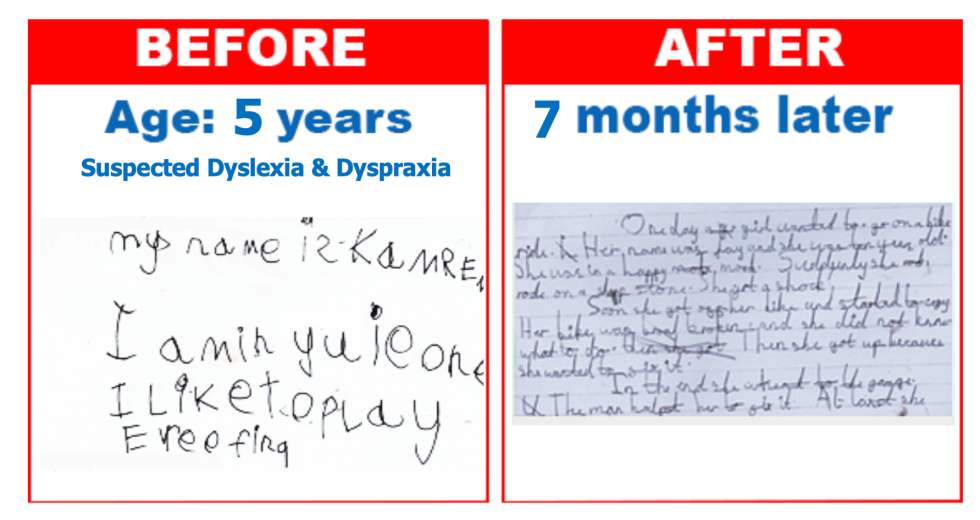 BEFORE
Age: 5 years
Suspected Dyslexia & Dyspraxia
my name iz KAMRE
I amin yuieone
I Liketoplay
Ereefing
AFTER
7 months later
One day girl wanted to go on a bike
ride. Her name was and she was ten years old.
She was in a happy mood. she
rode on a stone. She got a shock.
Soon she got her bike and started to cry
Her bike was broken and she did not know
what to do. Then she got up because
she wanted to it.
In the end she to the garage.
The man her to it. At she